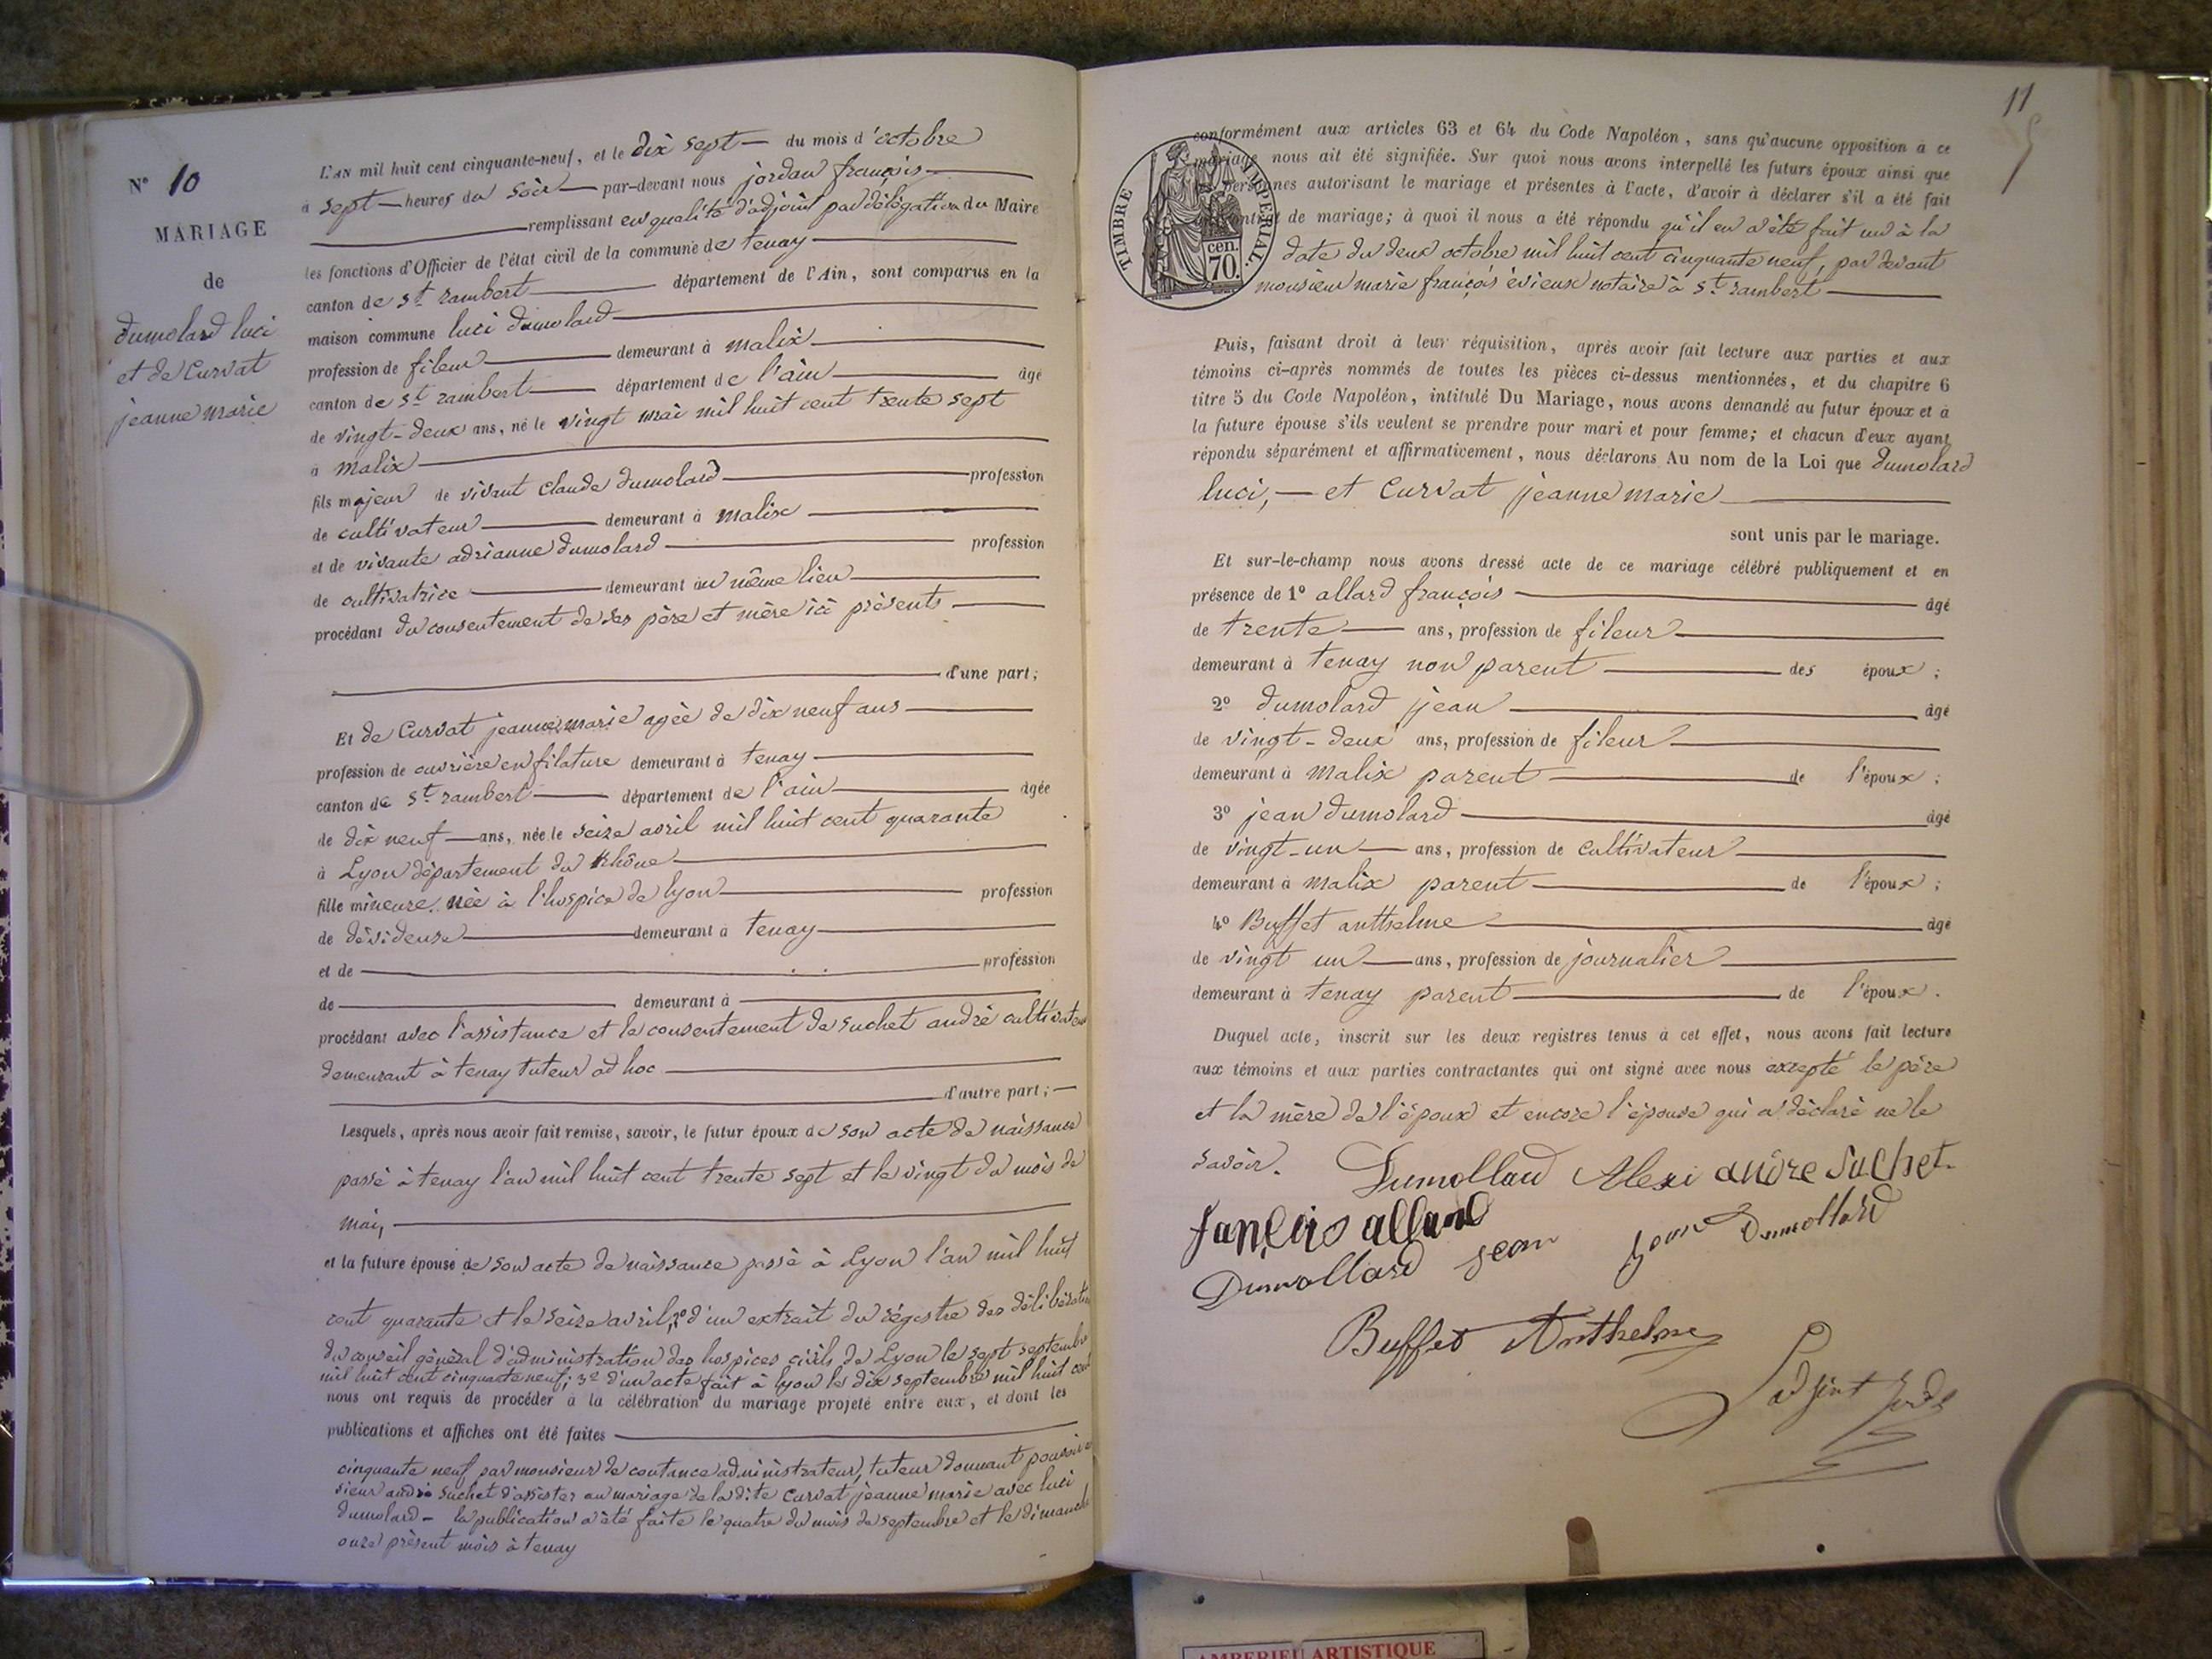 N° 10
MARIAGE
de
dumolard luci
et de Curvat
jeanne marie
L'AN mil huit cent cinquante-neuf, et le dix sept du mois d'octobre
à sept heures du soir par-devant nous jordan françois
remplissant en qualité d'adjoint par délégation du Maire
les fonctions d'Officier de l'état civil de la commune de tenay
canton de st rambert département de l'Ain, sont comparus en la
maison commune luci dumolard
profession de fileur demeurant à malix
canton de st rambert département de l'ain âgé
de vingt-deux ans, né le vingt mai mil huit cent trente sept
à malix
fils majeur de vivant claude dumolard profession
de cultivateur demeurant à malix
et de vivante adrianne dumolard profession
de cultivatrice demeurant au même lieu
procédant du consentement de ses père et mère ici présents
d'une part;
Et de Curvat jeanne marie agée de dix neuf ans
profession de ouvrière en filature demeurant à tenay
canton de st rambert département de l'ain âgée
de dix neuf ans, née le seize avril mil huit cent quarante
à Lyon département du Rhône
fille mineure née à l'hospice de lyon profession
de dévideuse demeurant à tenay
et de profession
de demeurant à
procédant avec l'assistance et le consentement de suchet andré cultivateur
demeurant à tenay tuteur ad hoc
d'autre part;
Lesquels, après nous avoir fait remise, savoir, le futur époux de son acte de naissance
passé à tenay l'an mil huit cent trente sept et le vingt du mois de
mai,
et la future épouse de son acte de naissance passé à Lyon l'an mil huit
cent quarante et le seize avril, 2° d'un extrait du régistre des délibération
du conseil général d'administration des hospices civils de Lyon le sept septembre
mil huit cent cinquante neuf; 3° d'un acte fait à lyon le dix septembre mil huit cent
nous ont requis de procéder à la célébration du mariage projeté entre eux, et dont les
publications et affiches ont été faites
cinquante neuf par monsieur de coutance administrateur, tuteur donnant pouvoir
sieur andré suchet d'assister au mariage de la dite curvat jeanne marie avec luci
dumolard - la publication a été faite le quatre du mois de septembre et le dimanche
onze présent mois à tenay
11
TIMBRE IMPERIAL
cen.
70.
conformément aux articles 63 et 64 du Code Napoléon, sans qu'aucune opposition à ce
mariage nous ait été signifiée. Sur quoi nous avons interpellé les futurs époux ainsi que
personnes autorisant le mariage et présentes à l'acte, d'avoir à déclarer s'il a été fait
de mariage; à quoi il nous a été répondu qu'il en a été fait un à la
date du deux octobre mil huit cent cinquante neuf, par devant
monsieur marie françois évieux notaire à st rambert
Puis, faisant droit à leur réquisition, après avoir fait lecture aux parties et aux
témoins ci-après nommés de toutes les pièces ci-dessus mentionnées, et du chapitre 6
titre 5 du Code Napoléon, intitulé Du Mariage, nous avons demandé au futur époux et à
la future épouse s'ils veulent se prendre pour mari et pour femme; et chacun d'eux ayant
répondu séparément et affirmativement, nous déclarons Au nom de la Loi que dumolard
luci, et Curvat jeanne marie
sont unis par le mariage.
Et sur-le-champ nous avons dressé acte de ce mariage célébré publiquement et en
présence de 1° allard françois âgé
de trente ans, profession de fileur
demeurant à tenay non parent des époux;
2° dumolard jean âgé
de vingt-deux ans, profession de fileur
demeurant à malix parent de l'époux;
3° jean dumolard âgé
de vingt-un ans, profession de cultivateur
demeurant à malix parent de l'époux;
4° Buffet anthelme âgé
de vingt un ans, profession de journalier
demeurant à tenay parent de l'époux.
Duquel acte, inscrit sur les deux registres tenus à cet effet, nous avons fait lecture
aux témoins et aux parties contractantes qui ont signé avec nous excepté le père
et la mère de l'époux et encore l'épouse qui a déclaré ne le
savoir.
Dumollard Alexi andre Suchet
françois allard
Dumollard jean
jean Dumollard
Buffet Anthelme
AMBERIEU ARTISTIQUE